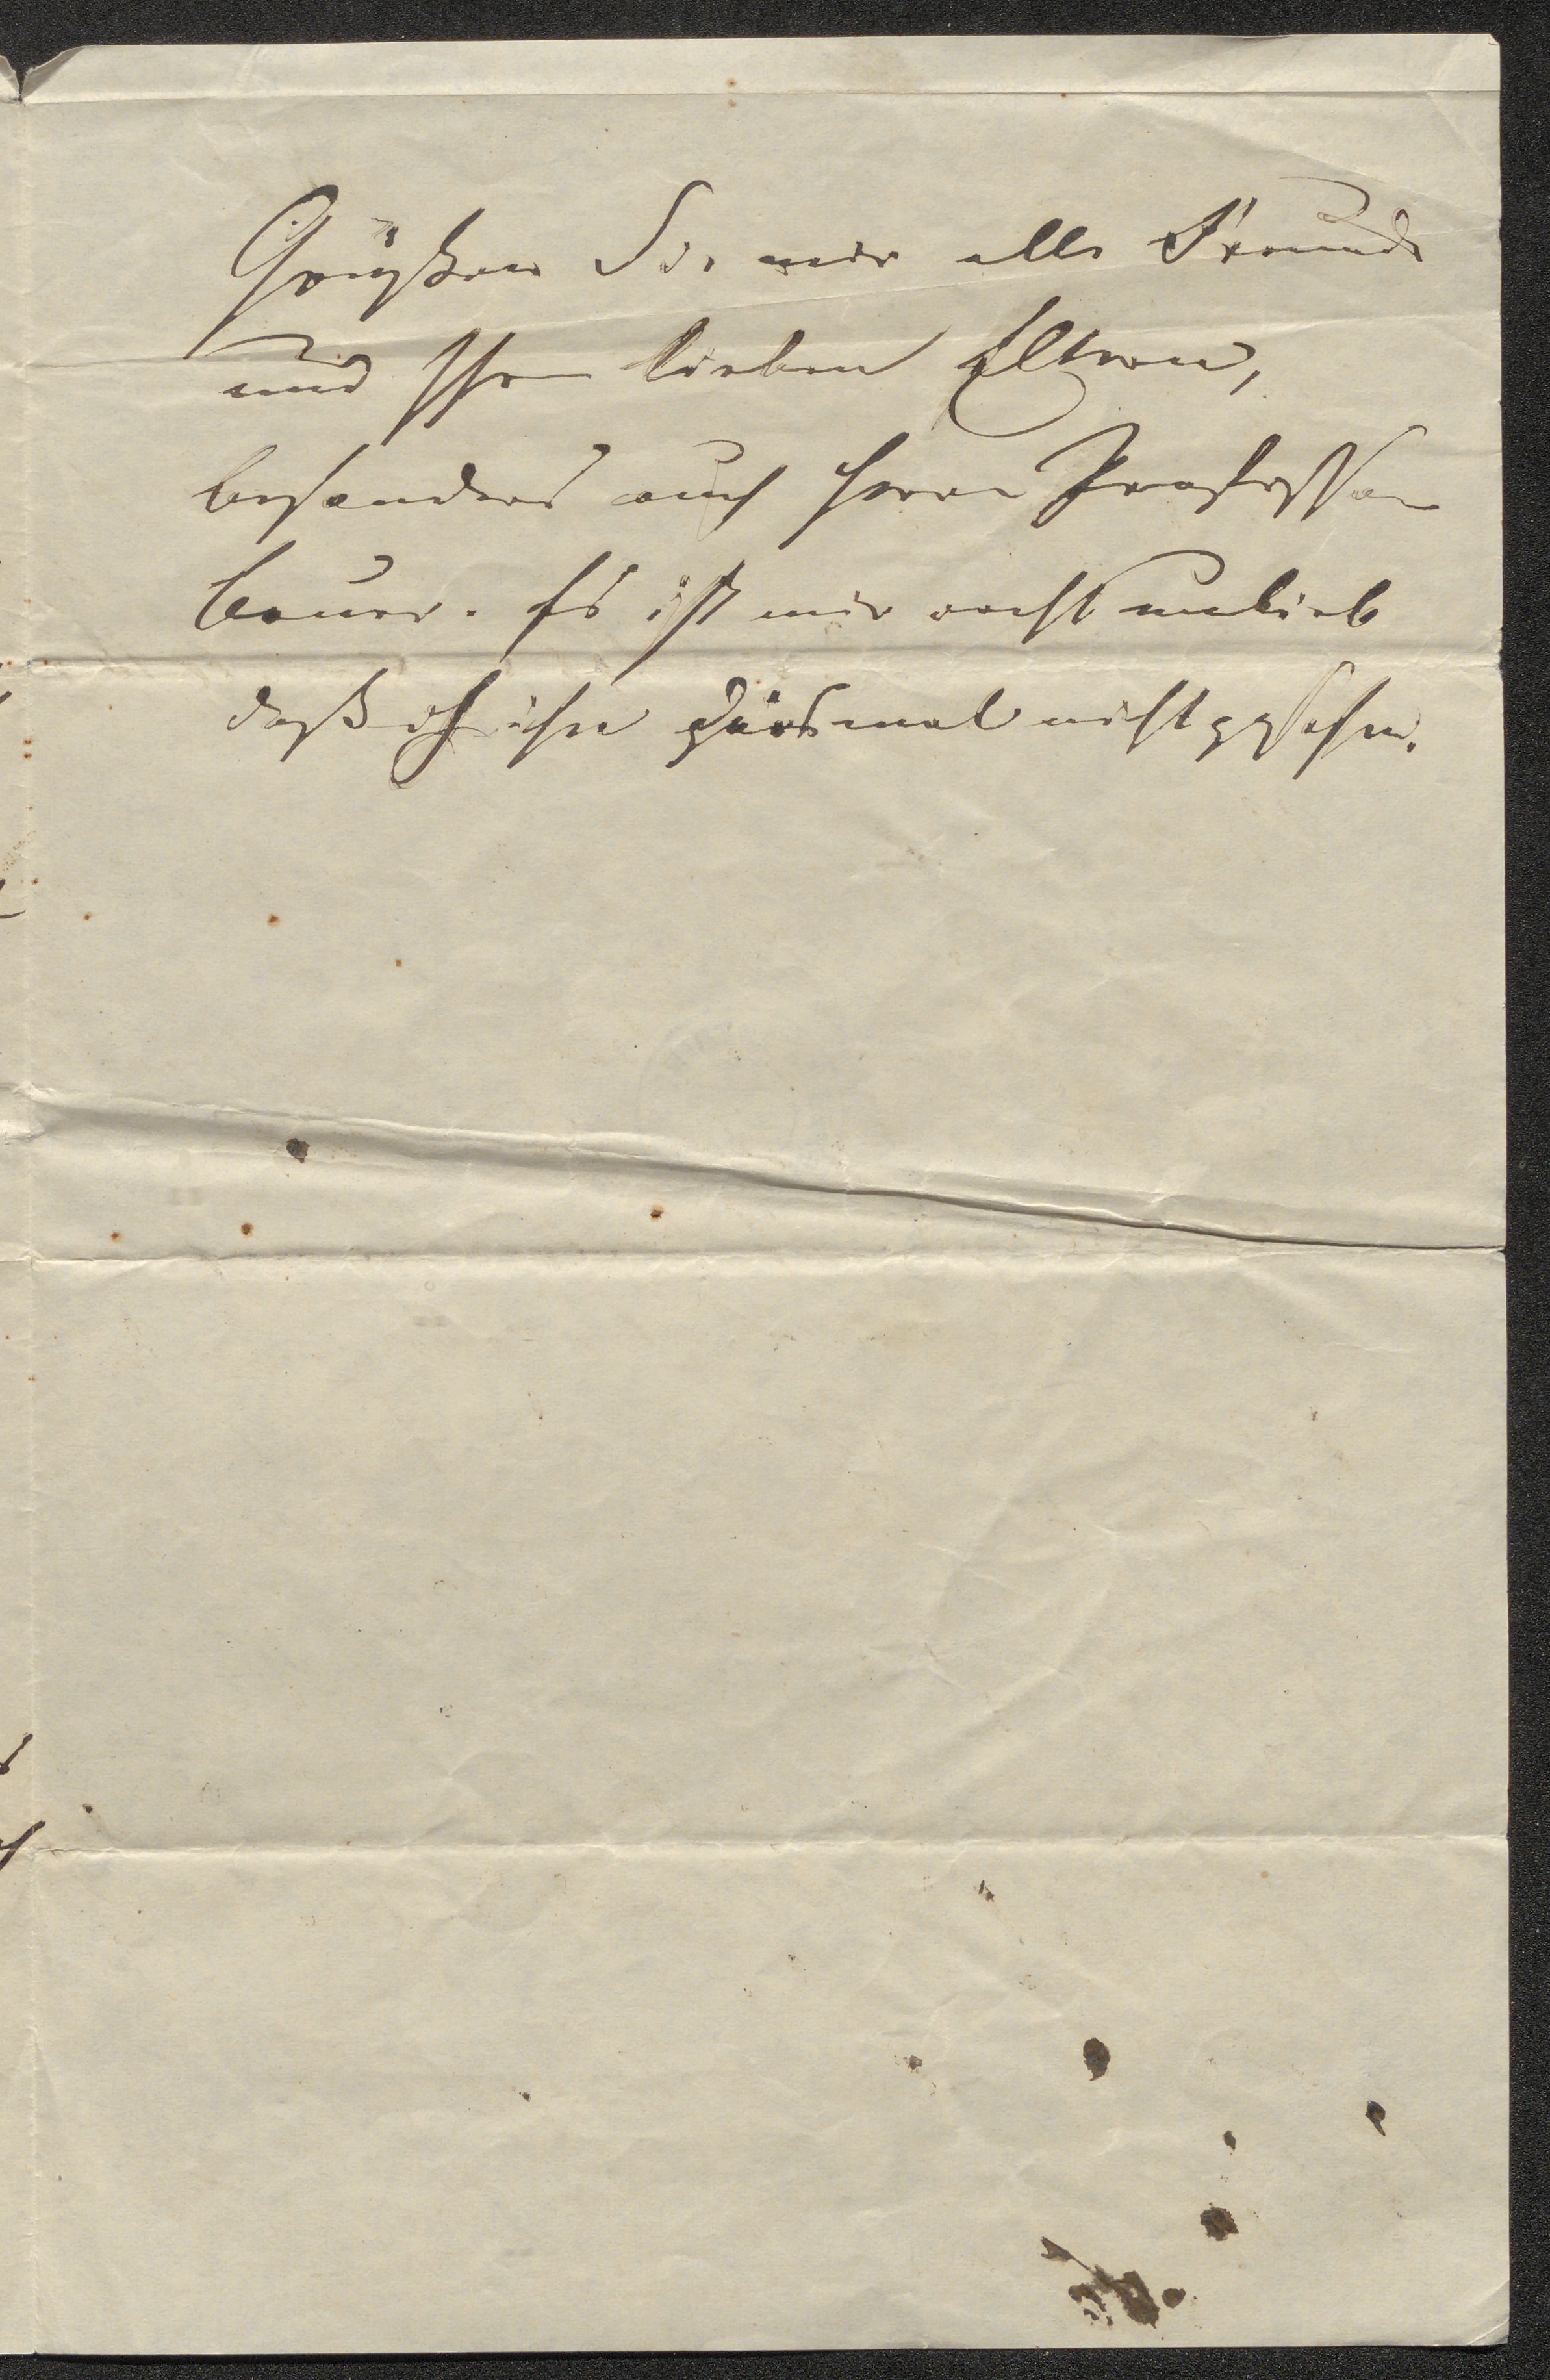 Grüßen Sie mir alle Freunde
und Ihre lieben Eltern,
besonders auch Herrn Professor
Bauer. Es ist mir recht unlieb
daß ich ihn diesmal nicht gesehen.